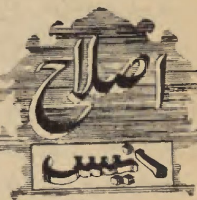 اصلاح
انیس